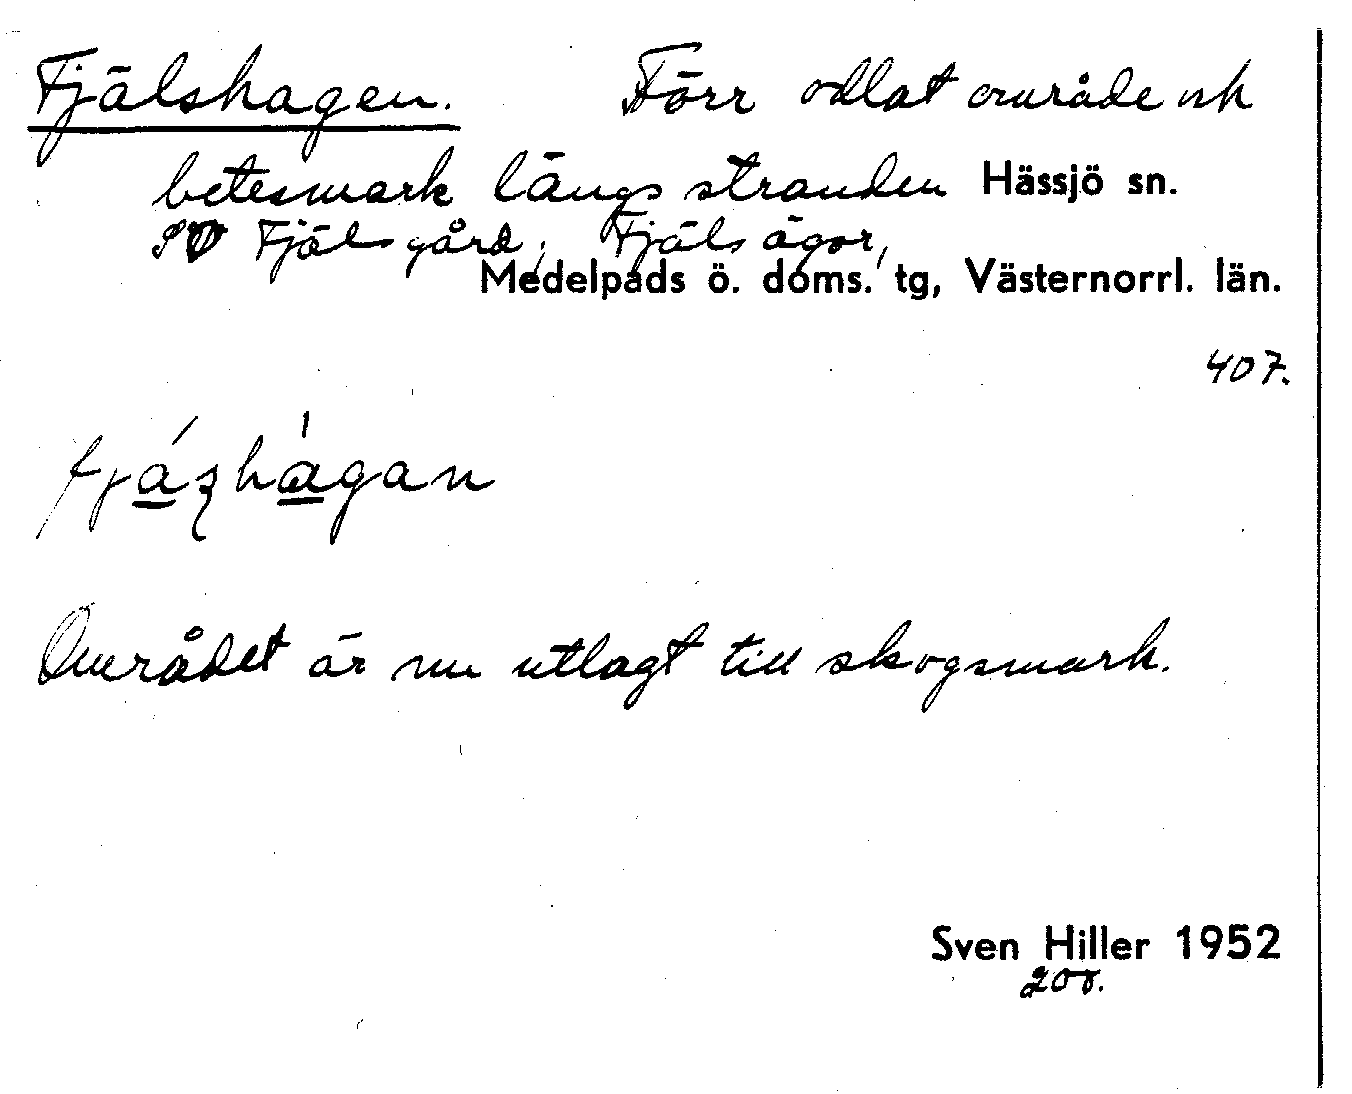 Fjälshagen. Förr odlat område och
betesmark längs stranden Hässjö sn.
SV Fjäls gård; Fjäls ägor,
Medelpads ö. doms. tg, Västernorrl. län.
407.
Området är nu utlagt till skogsmark.
Sven Hiller 1952